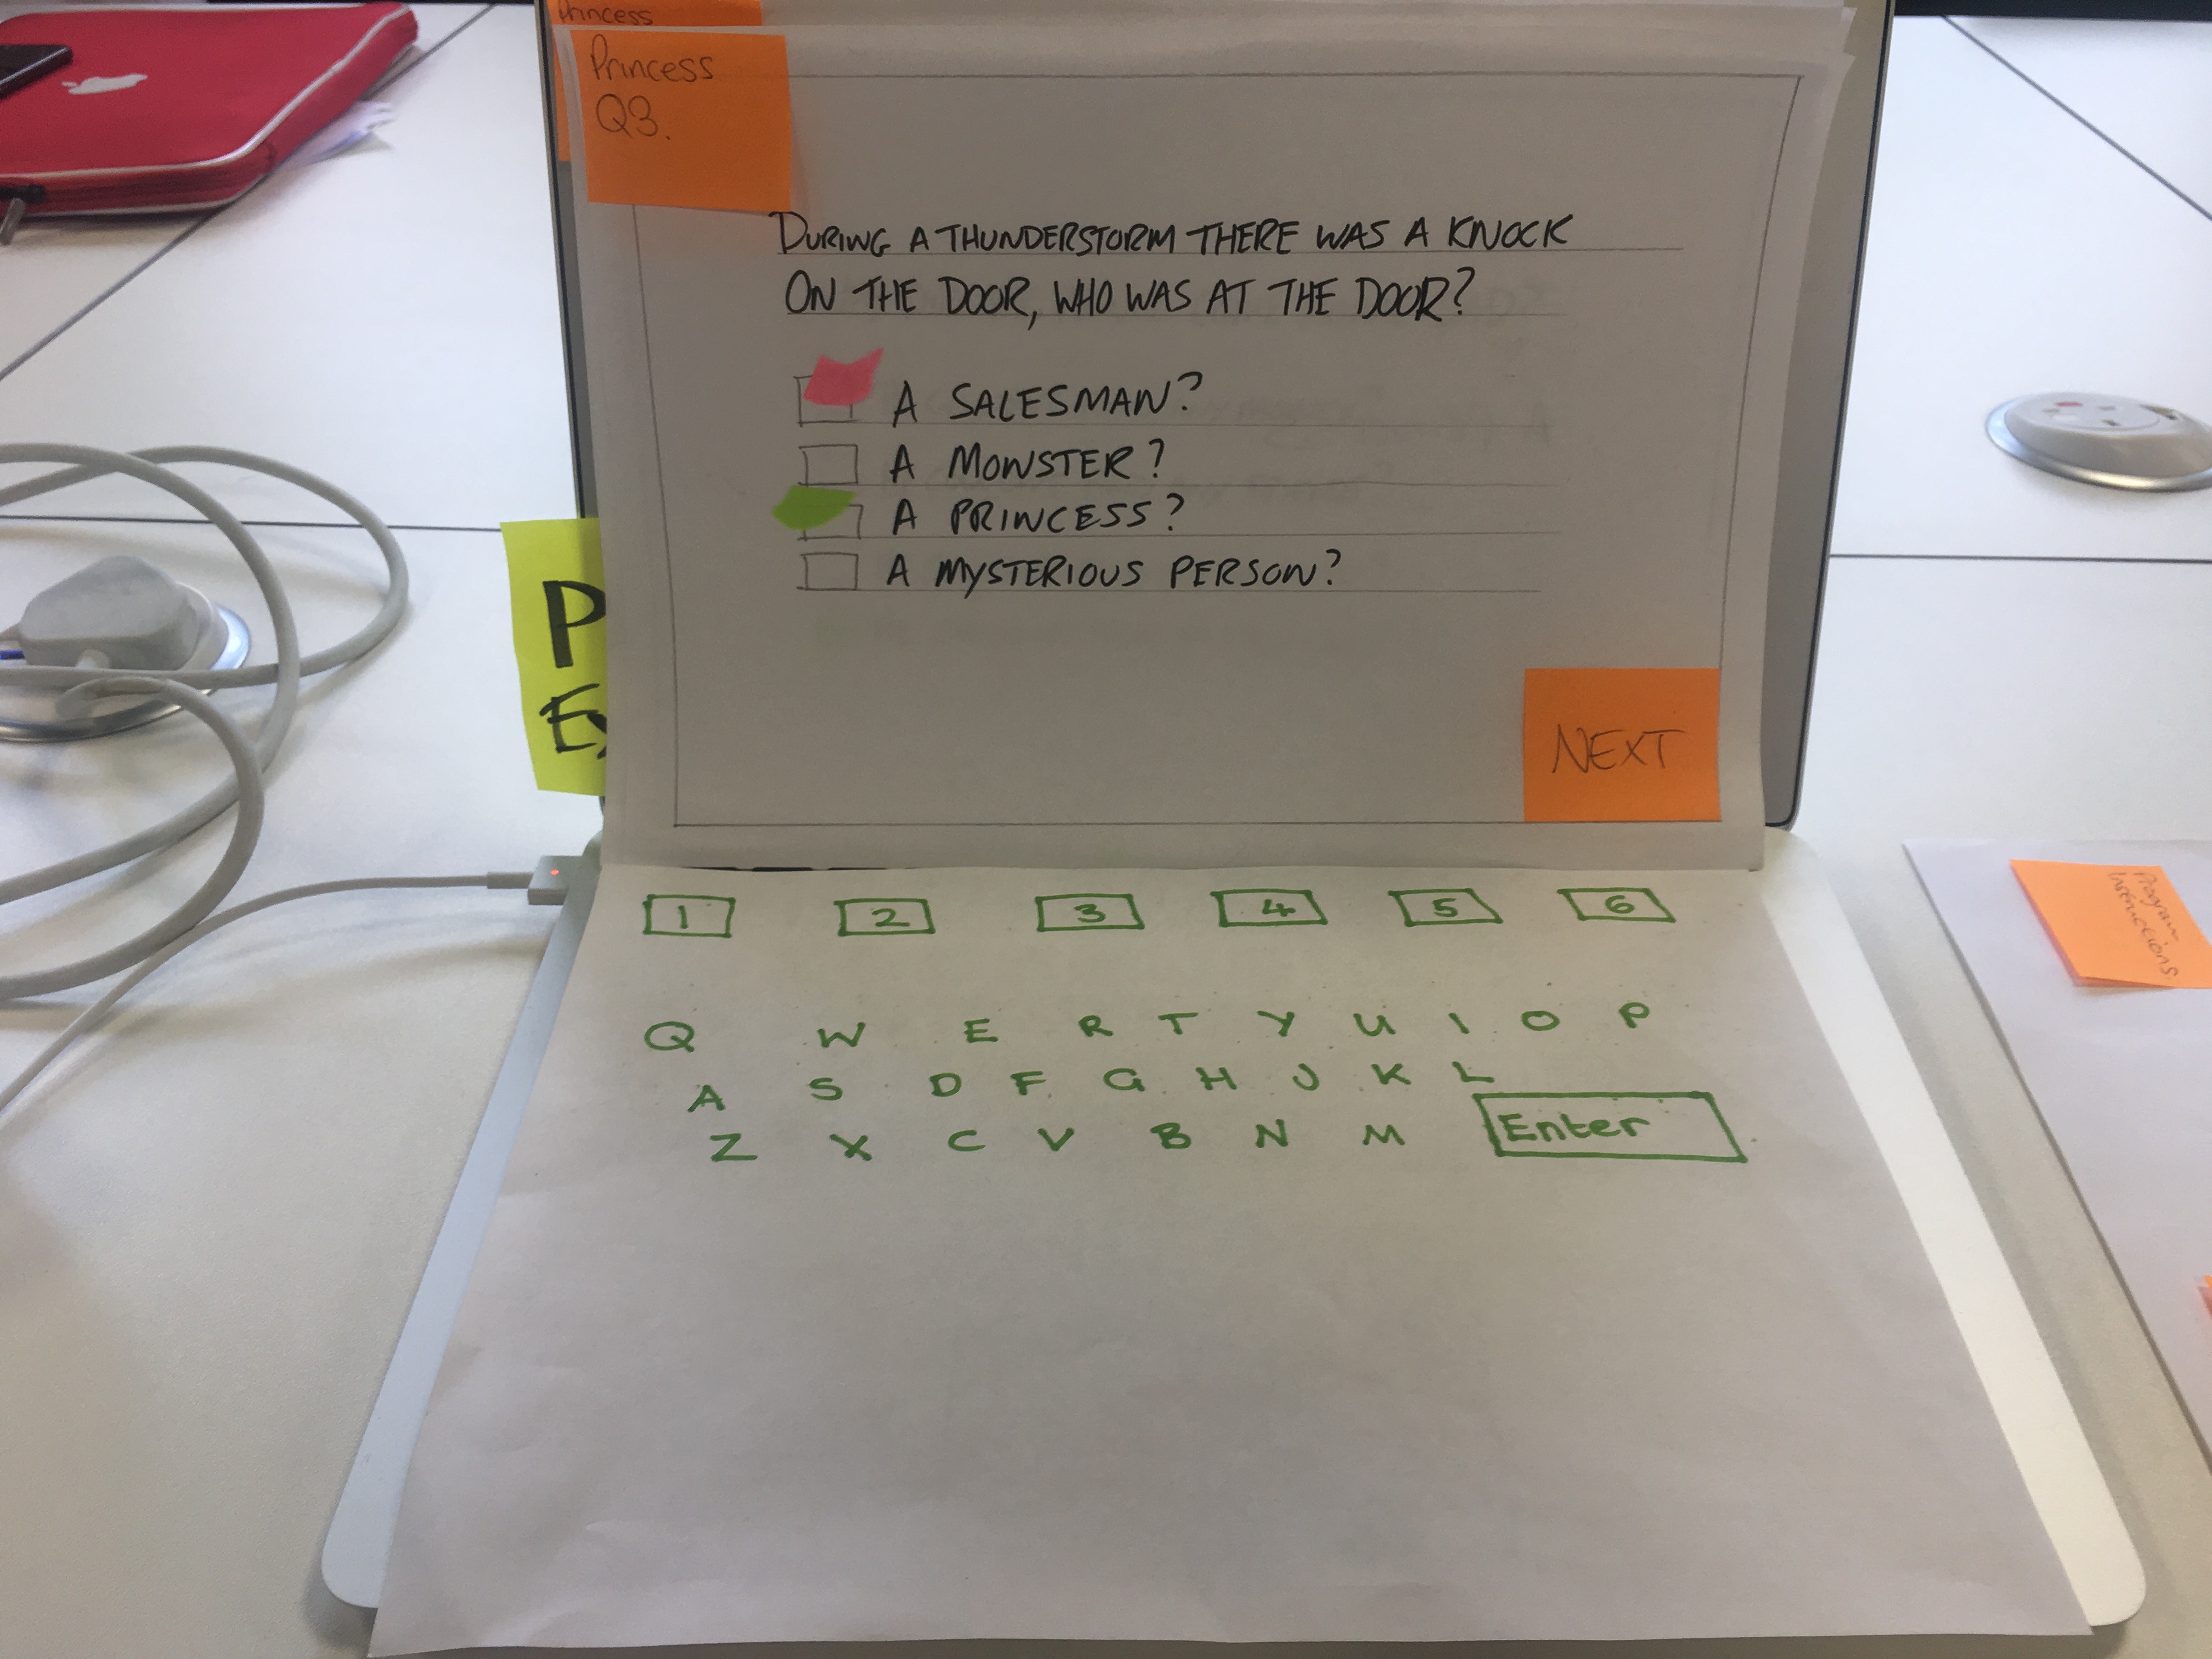 Princess
Princess
Q3.
DURING A THUNDERSTORM THERE WAS A KNOCK
ON THE DOOR, WHO WAS AT THE DOOR?
A SALESMAN?
A MONSTER?
A PRINCESS?
A MYSTERIOUS PERSON?
P
NEXT
1 2 3 4 5 6
Q W E R T Y U I O P
A S D F G H J K L
Z X C V B N M Enter
Program
Instructions